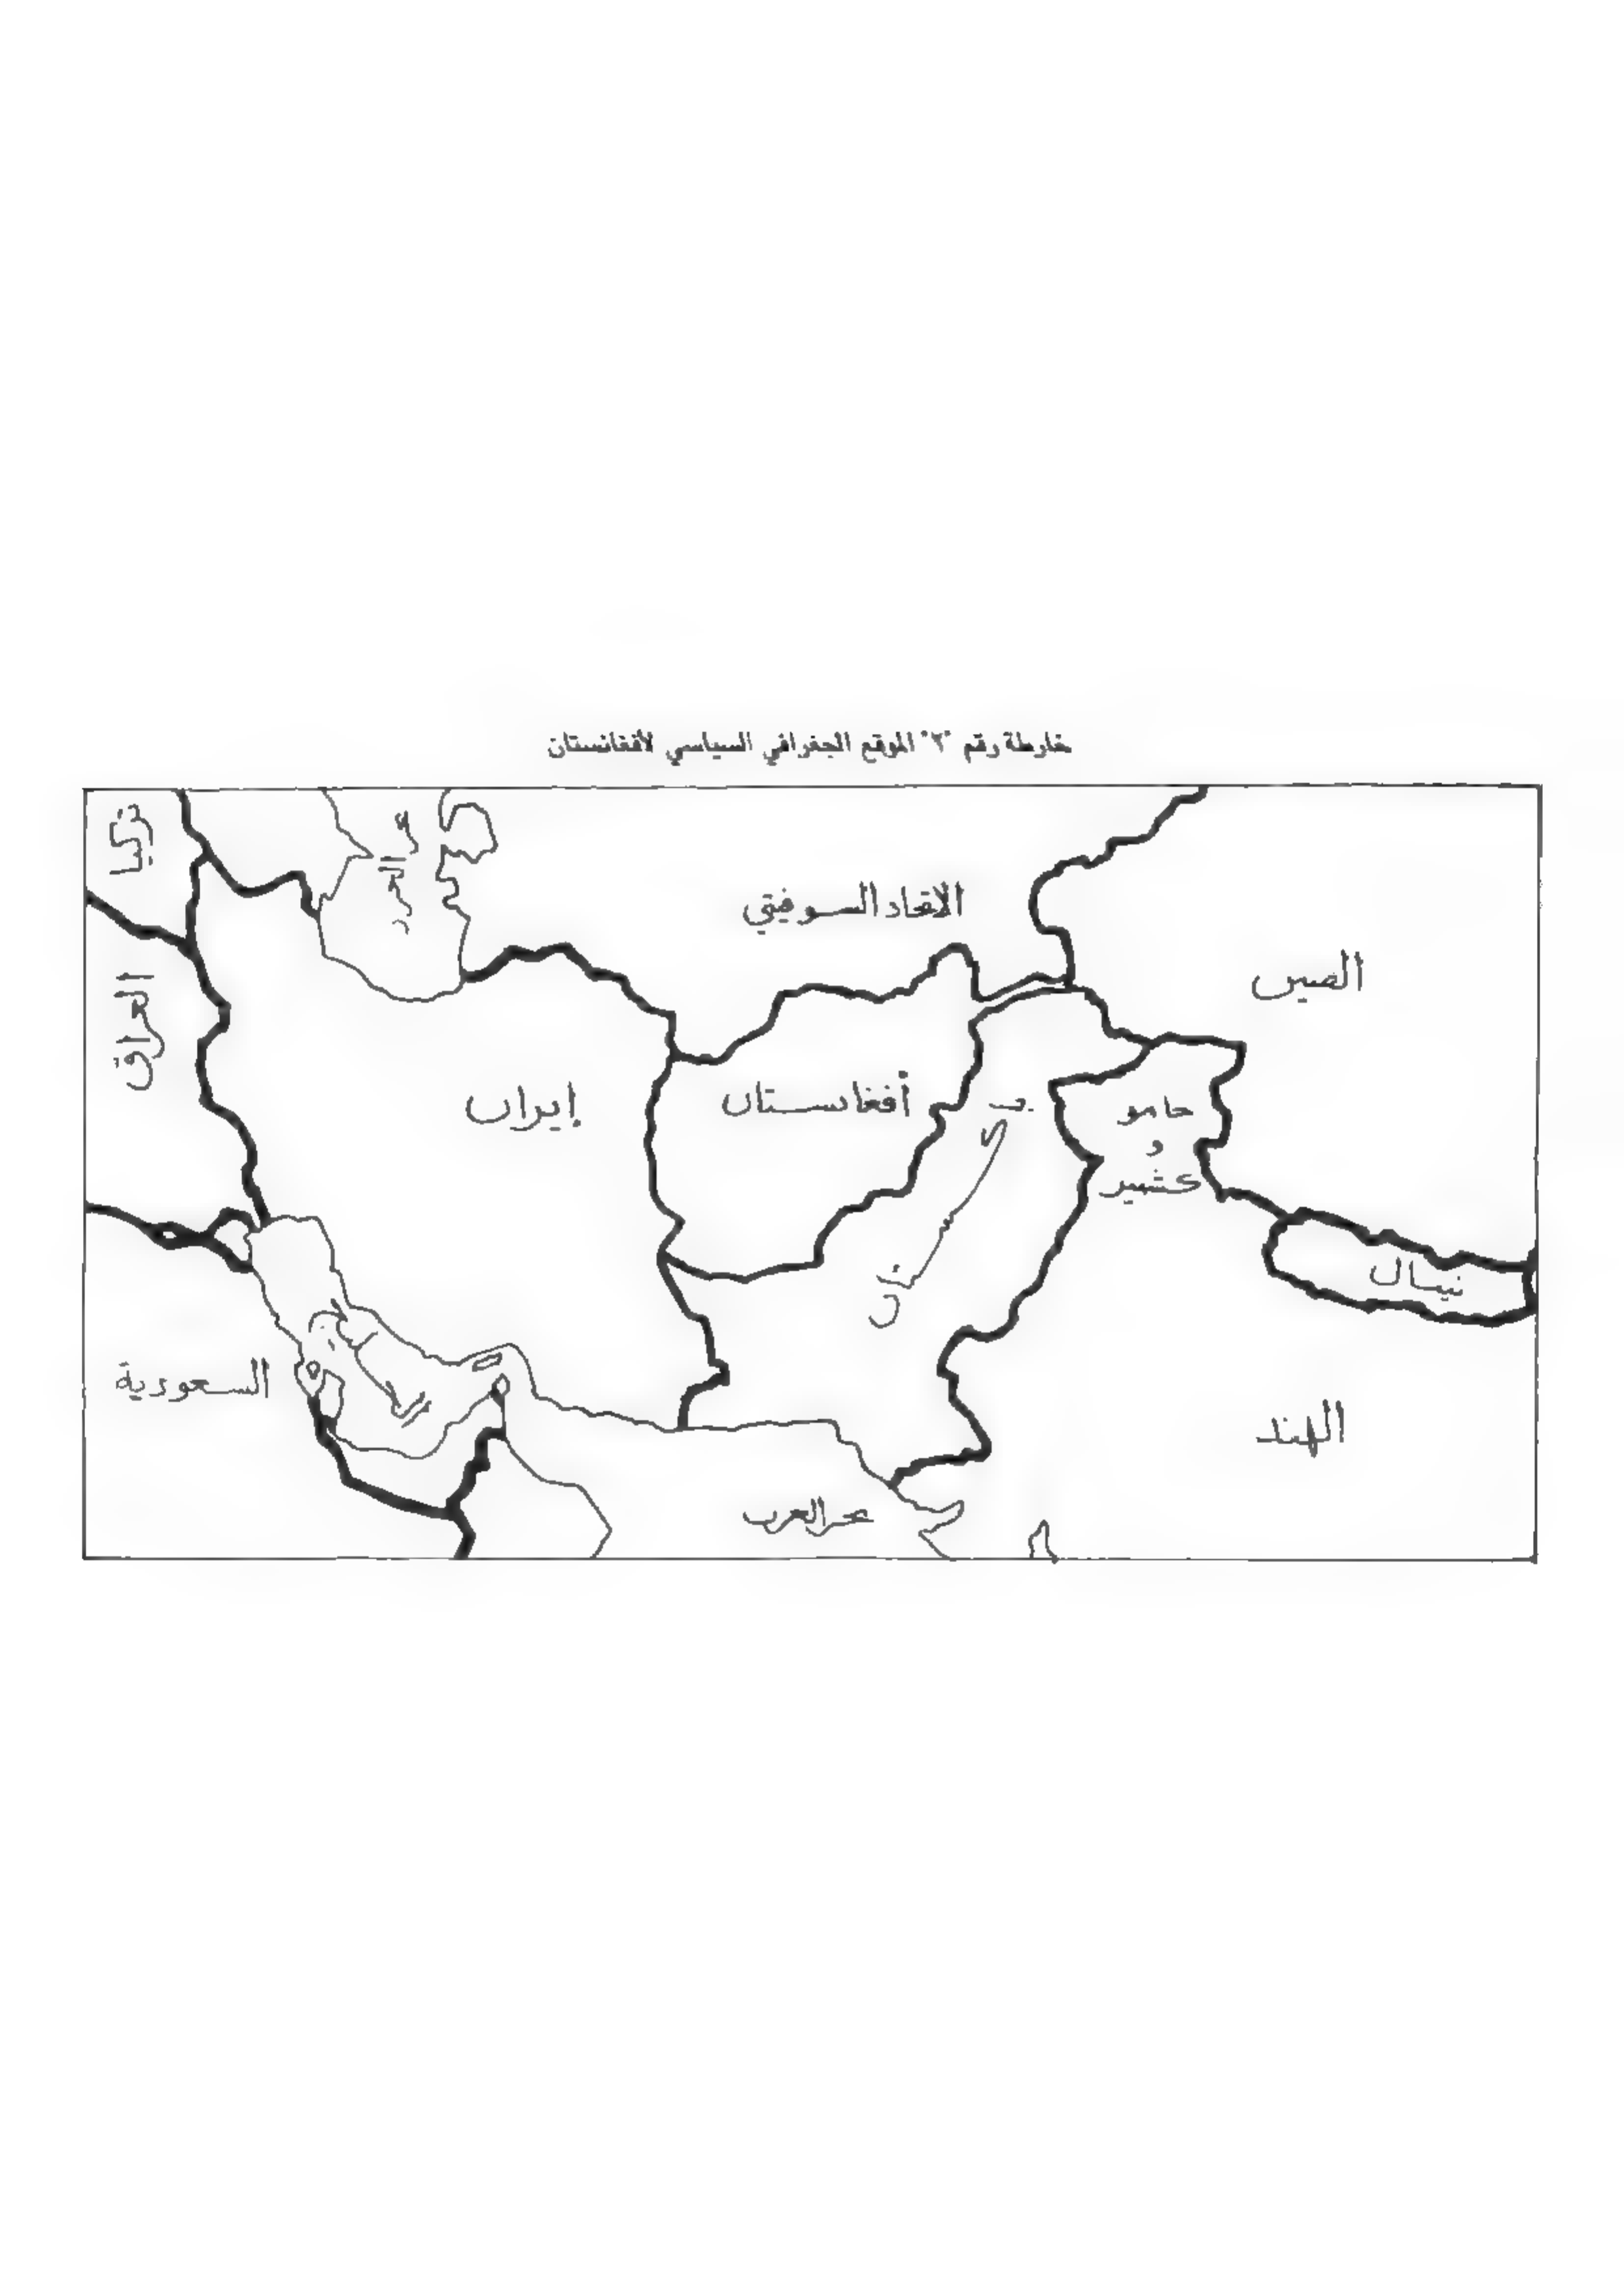 خارطة رقم "٢" الموقع الجغرافي السياسي لأفغانستان
تركيا
الاتحاد السوفيتي
الصين
العراق
إيران
أفغانستان
جامو
و
كشمير
نيبال
السعودية
الهند
بحر العرب